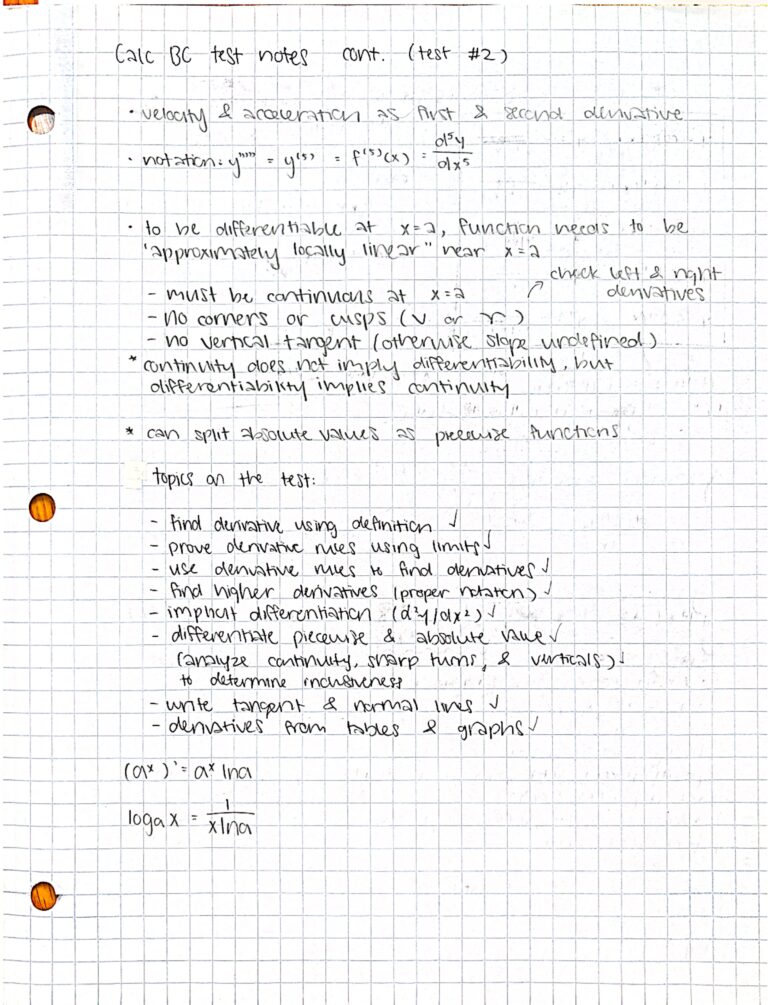 Calc BC test notes cont. (test #2)
• velocity & acceleration as first & second derivative
• notation: y''''' = y⁽⁵⁾ = f⁽⁵⁾(x) = d⁵y/dx⁵
• to be differentiable at x=a, function needs to be
"approximately locally linear" near x=a
check left & right
derivatives
- must be continuous at x=a
- no corners or cusps (v or r)
- no vertical tangent (otherwise slope undefined)
* continuity does not imply differentiability, but
differentiability implies continuity
* can split absolute values as piecewise functions
topics on the test:
- find derivative using definition ✓
- prove derivative rules using limits ✓
- use derivative rules to find derivatives ✓
- find higher derivatives (proper notation) ✓
- implicit differentiation (d²y/dx²) ✓
- differentiate piecewise & absolute value ✓
(analyze continuity, sharp turns, & verticals) ✓
to determine inclusiveness
- write tangent & normal lines ✓
- derivatives from tables & graphs ✓
(aˣ)' = aˣ lna
logₐ x = 1/xlna